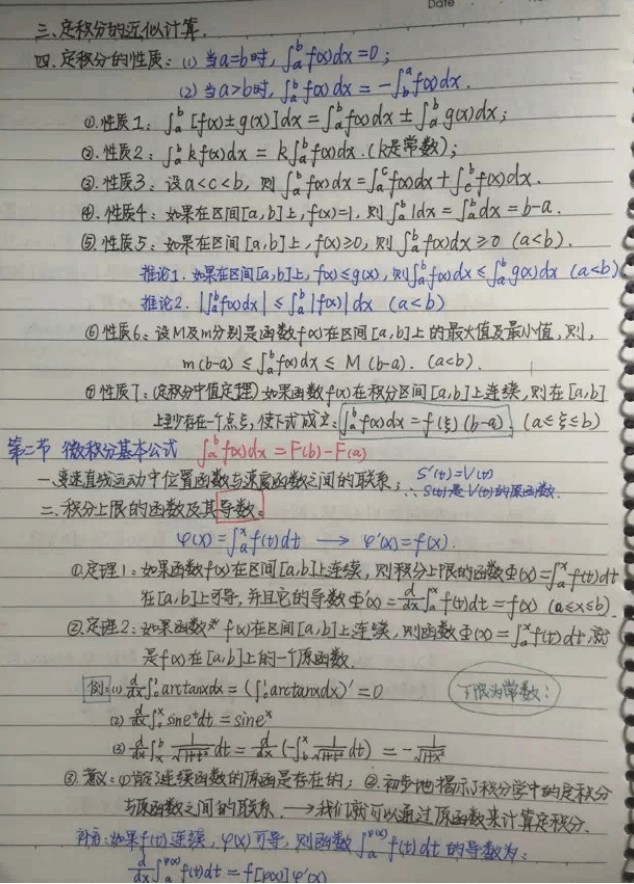 Date
三、定积分的近似计算.
四、定积分的性质：(1) 当a=b时, ∫_a^b f(x)dx=0；
(2) 当a>b时, ∫_a^b f(x)dx = -∫_b^a f(x)dx.
①.性质1：∫_a^b [f(x)±g(x)]dx = ∫_a^b f(x)dx ± ∫_a^b g(x)dx；
②.性质2：∫_a^b kf(x)dx = k∫_a^b f(x)dx.(k是常数)；
③.性质3：设a<c<b, 则 ∫_a^b f(x)dx=∫_a^c f(x)dx+∫_c^b f(x)dx.
④.性质4：如果在区间[a,b]上, f(x)=1, 则 ∫_a^b 1dx=∫_a^b dx=b-a.
⑤.性质5：如果在区间[a,b]上, f(x)≥0, 则 ∫_a^b f(x)dx≥0 (a<b).
推论1. 如果在区间[a,b]上, f(x)≤g(x), 则∫_a^b f(x)dx≤∫_a^b g(x)dx (a<b)
推论2. |∫_a^b f(x)dx|≤∫_a^b |f(x)|dx (a<b)
⑥性质6：设M及m分别是函数f(x)在区间[a,b]上的最大值及最小值, 则,
m(b-a) ≤∫_a^b f(x)dx≤ M(b-a). (a<b).
⑦性质7：(定积分中值定理)如果函数f(x)在积分区间[a,b]上连续, 则在[a,b]
上至少存在一个点ξ, 使下式成立：∫_a^b f(x)dx=f(ξ)(b-a). (a≤ξ≤b)
第二节 微积分基本公式 ∫_a^b f(x)dx=F(b)-F(a)
一.变速直线运动中位置函数与速度函数之间的联系； S'(t)=V(t)
∴S(t)是V(t)的原函数.
二.积分上限的函数及其导数：
φ(x)=∫_a^x f(t)dt ⟶ φ'(x)=f(x).
①定理1：如果函数f(x)在区间[a,b]上连续, 则积分上限的函数Φ(x)=∫_a^x f(t)dt
在[a,b]上可导, 并且它的导数Φ'(x)=d/dx∫_a^x f(t)dt=f(x) (a≤x≤b).
②定理2：如果函数 f(x)在区间[a,b]上连续, 则函数Φ(x)=∫_a^x f(t)dt,就
是f(x)在[a,b]上的一个原函数.
例：(1) d/dx∫_0^1 arctanxdx=(∫_0^1 arctanxdx)'=0 下限为常数：
(2) d/dx∫_0^x sine^t dt=sine^x
(3) d/dx∫_x^b 1/√(1+t²) dt= d/dx(-∫_b^x 1/√(1+t²) dt) = -1/√(1+x²)
③.意义：①肯定连续函数的原函是存在的；②.初步地揭示了积分学中的定积分
与原函数之间的联系. ⟶我们就可以通过原函数来计算定积分.
补充：如果f(t)连续, φ(x)可导, 则函数∫_a^φ(x) f(t)dt的导数为：
d/dx∫_a^φ(x) f(t)dt=f[φ(x)]φ'(x)